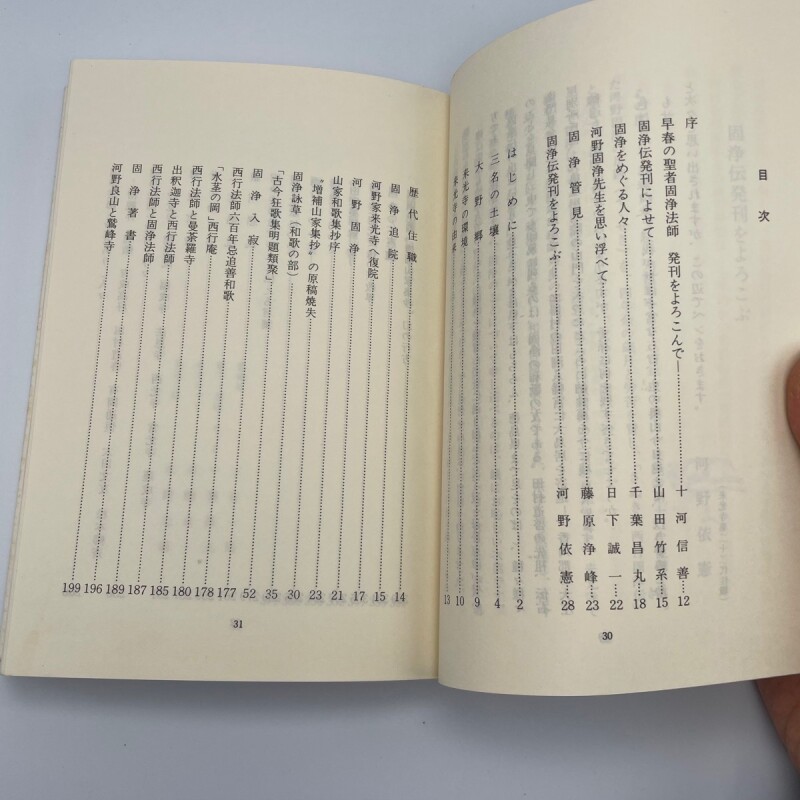 目次
序
早春の聖者固浄法師　発刊をよろこんで―……十河信善…12
固浄伝発刊によせて……山田竹系…15
固浄をめぐる人々……千葉昌丸…18
河野固浄先生を思い浮べて……日下誠一…22
固浄管見……藤原浄峰…23
固浄伝発刊をよろこぶ……河野依憲…28
はじめに……2
三名の土壌……4
大野郷……9
来光寺の環境……10
来光寺の由来……13
30
歴代住職……14
固浄追院……15
河野家来光寺へ復院……17
河野固浄……21
山家和歌集抄序……23
"増補山家集抄"の原稿焼失……30
固浄詠草（和歌の部）……35
「古今狂歌集明題類聚」……52
固浄入寂……177
西行法師六百年忌追善和歌……178
「水茎の岡」西行庵……180
西行法師と曼荼羅寺……185
出釈迦寺と西行法師……187
西行法師と固浄法師……189
固浄著書……196
河野良山と鷲峰寺……199
31